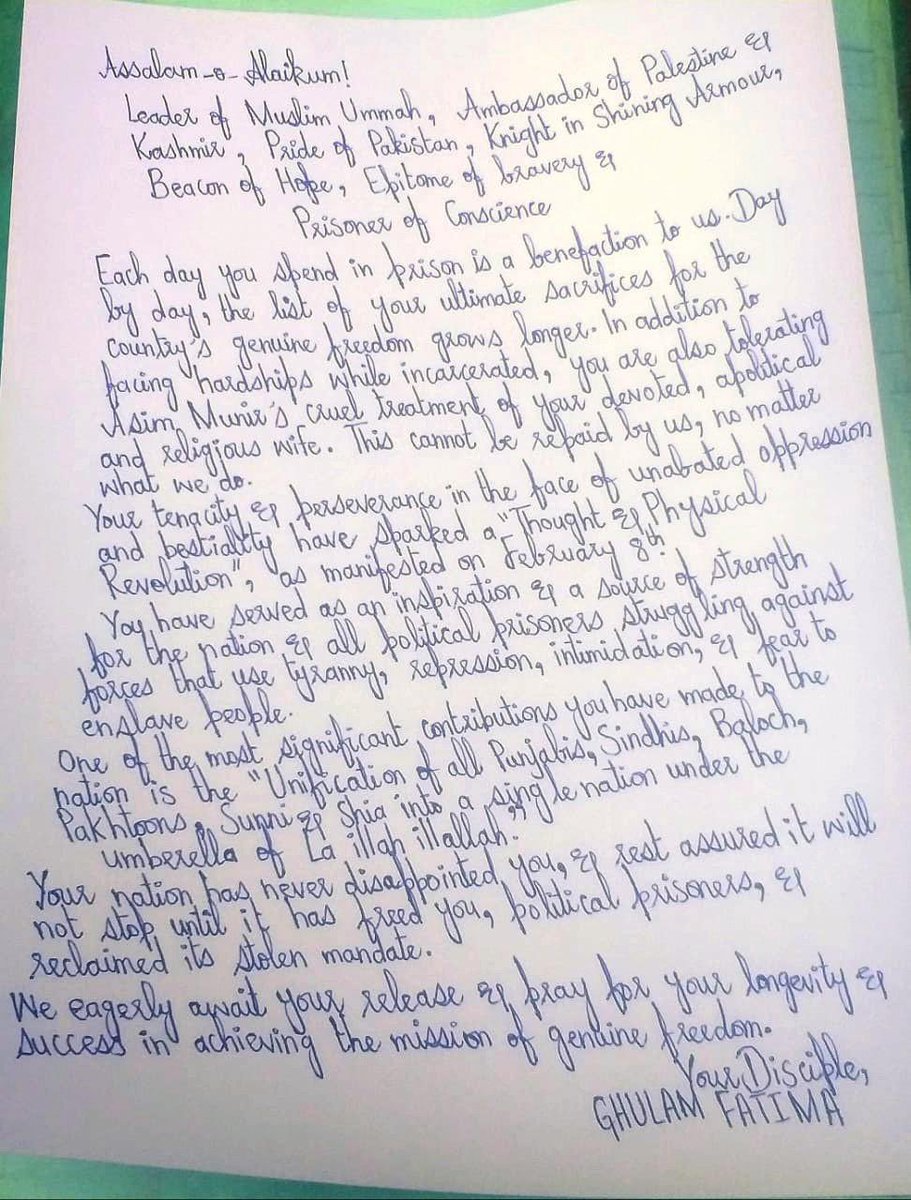 Assalam-o-Alaikum!
Leader of Muslim Ummah, Ambassador of Palestine &
Kashmir, Pride of Pakistan, Knight in Shining Armour,
Beacon of Hope, Epitome of bravery &
Prisoner of Conscience
Each day you spend in prison is a benefaction to us. Day
by day, the list of your ultimate sacrifices for the
country's genuine freedom grows longer. In addition to
facing hardships while incarcerated, you are also tolerating
Asim Munir's cruel treatment of your devoted, apolitical
and religious wife. This cannot be repaid by us, no matter
what we do.
Your tenacity & perseverance in the face of unabated oppression
and bestiality have sparked a "Thought & Physical
Revolution", as manifested on February 8th.
You have served as an inspiration & a source of strength
for the nation & all political prisoners struggling against
forces that use tyranny, repression, intimidation, & fear to
enslave people.
One of the most significant contributions you have made to the
nation is the "Unification of all Punjabis, Sindhis, Baloch,
Pakhtoons, Sunni & Shia into a single nation under the
umberella of La illah illallah."
Your nation has never disappointed you, & rest assured it will
not stop until it has freed you, political prisoners, &
reclaimed its stolen mandate.
We eagerly await your release & pray for your longevity &
success in achieving the mission of genuine freedom.
Your Disciple,
GHULAM FATIMA